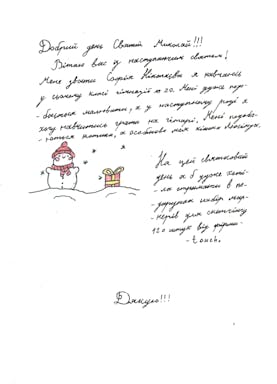 Добрий день Святий Миколай!!!
Вітаю вас із наступаючим святом!
Мене звати Софія я навчаюсь
у сьомому класі гімназії № 20. Мені дуже подо-
-бається малювати, а у наступному році я
хочу навчитись грати на гітарі. Мені подоба-
-ються котики, а особливо мій кішка
На цей святковий
день я б дуже хоті-
-ла отримати в по-
-дарунок набір мар-
-керів для скетчінгу
120 штук від фірми
-touch.
Дякую!!!